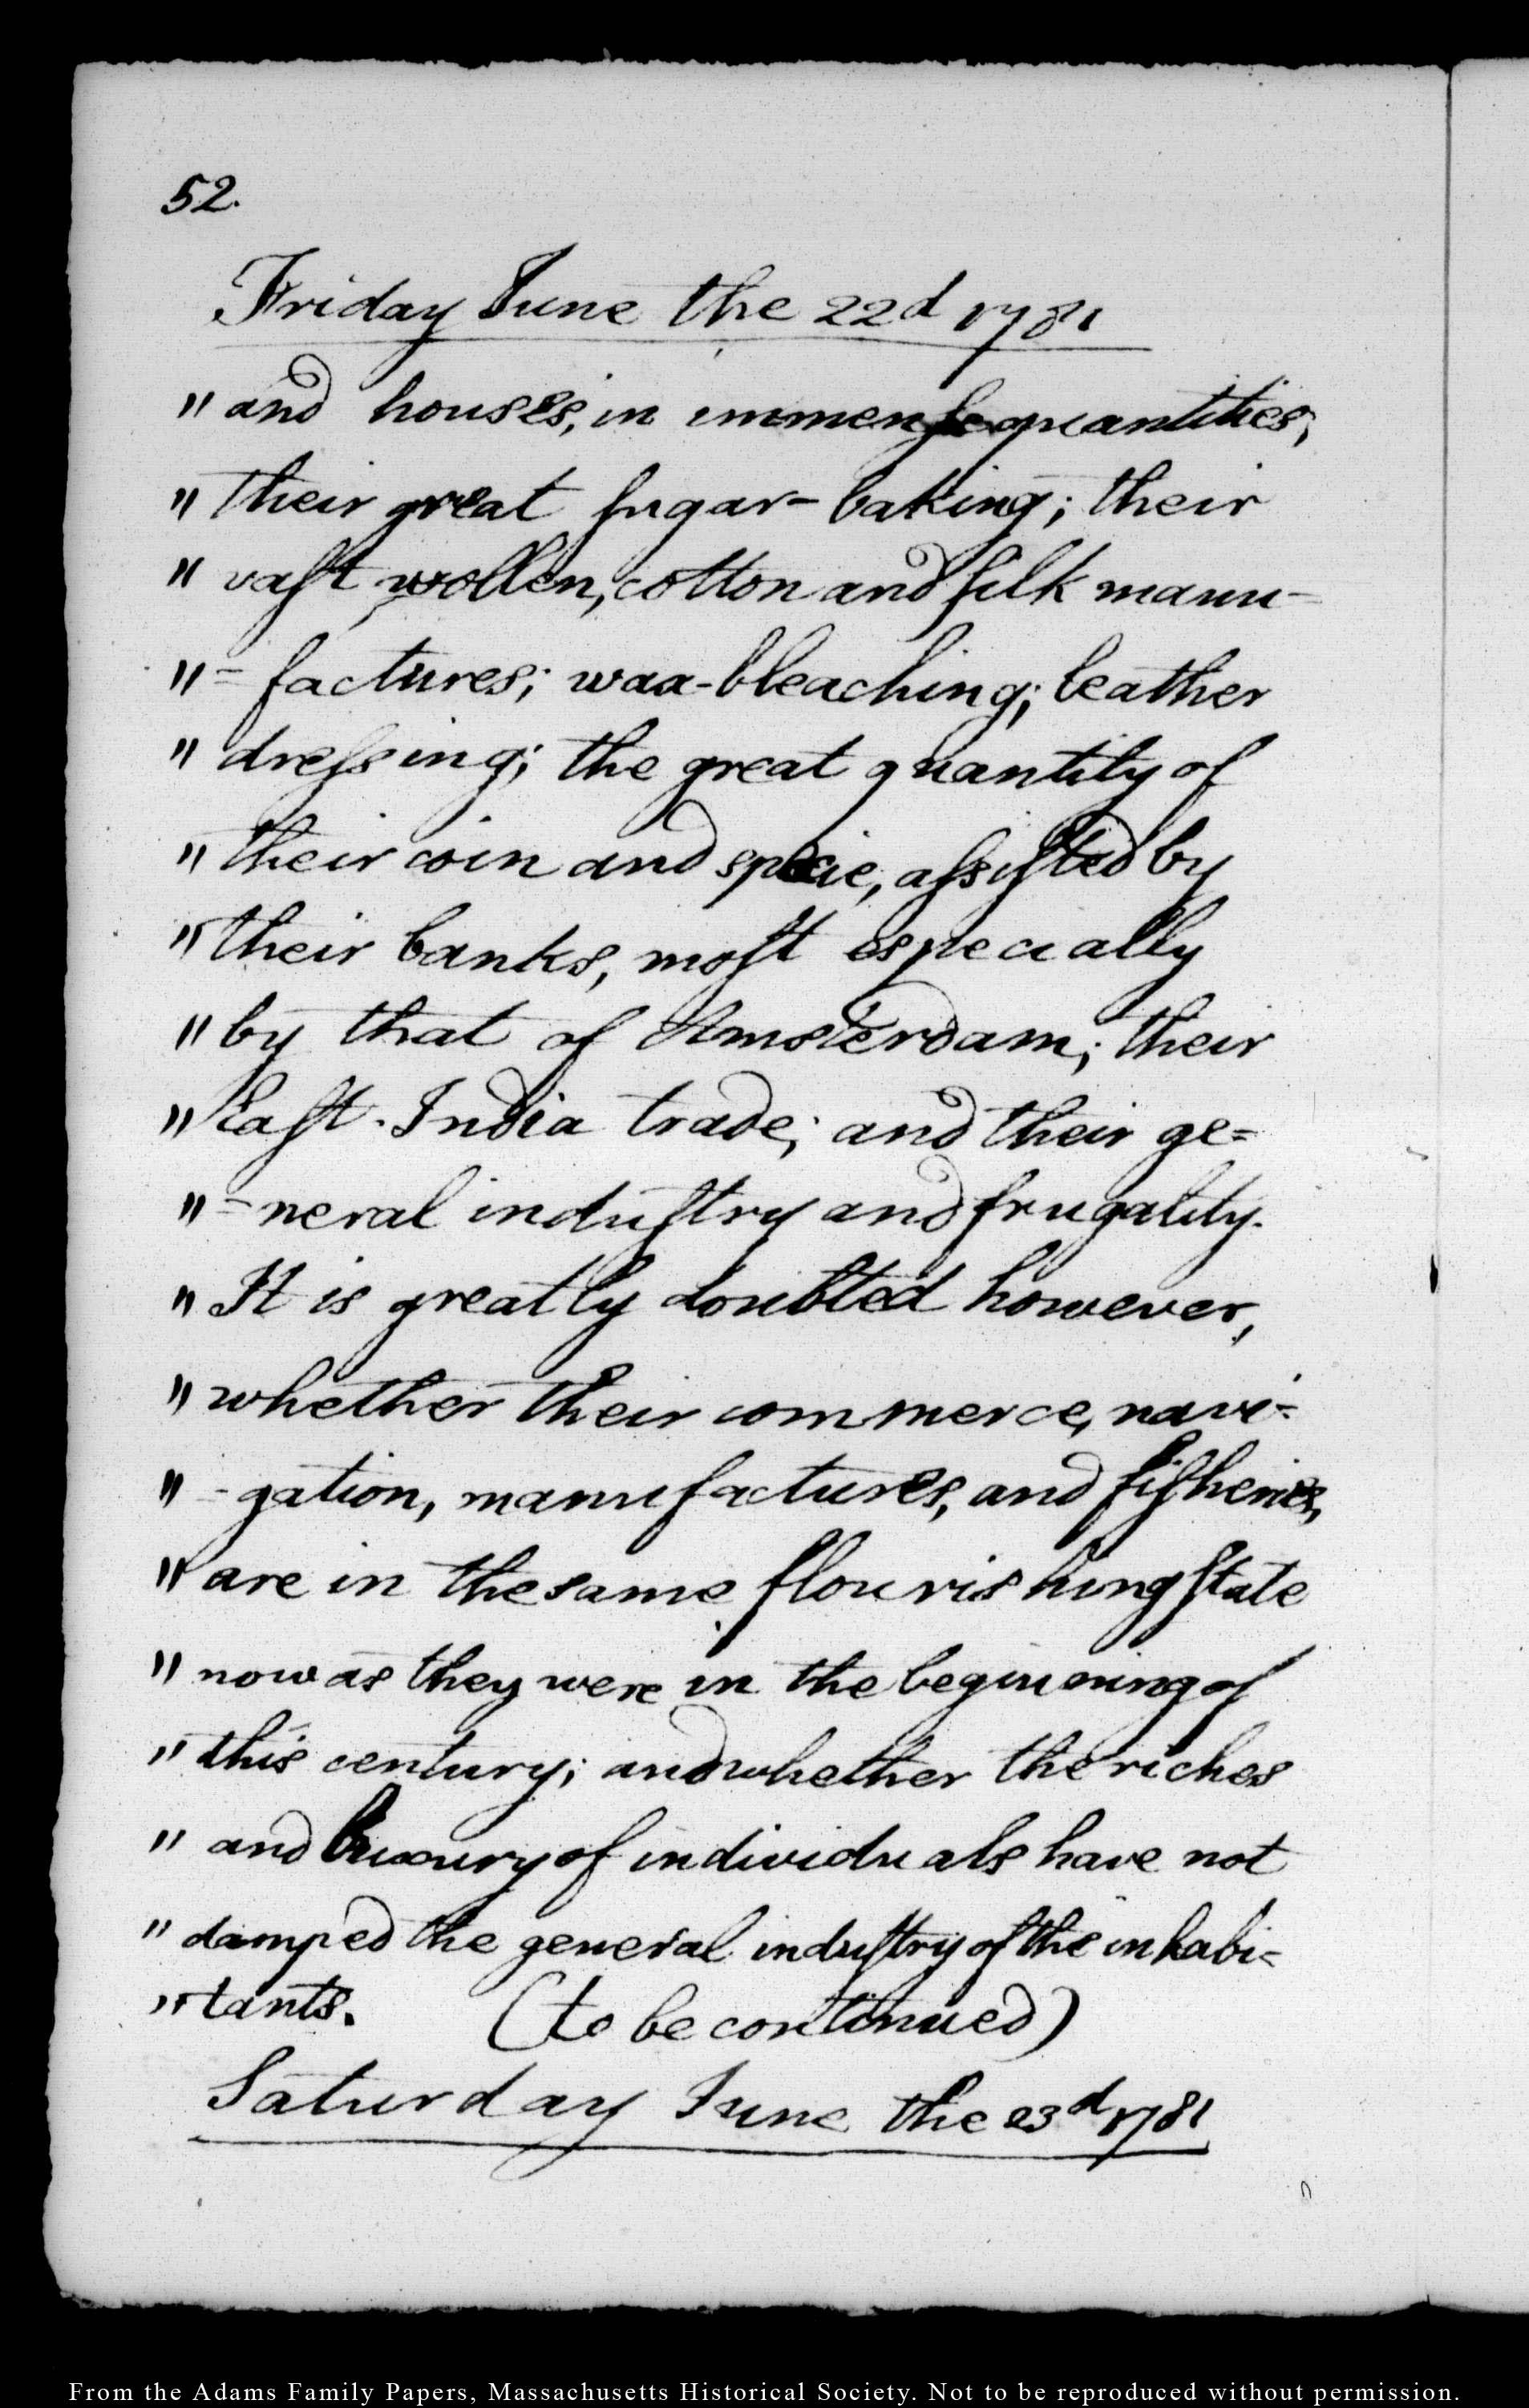 52.
Friday June the 22d 1781
" and houses, in immense quantities;
" their great sugar-baking; their
" vast wollen, cotton and silk manu-
" -factures; wax-bleaching; leather
" dressing; the great quantity of
" their coin and specie, assisted by
" their banks, most especially
" by that of Amsterdam; their
" East-India trade; and their ge=
" -neral industry and frugality.
" It is greatly doubted however,
" whether their commerce, navi-
" -gation, manufactures, and fisheries,
" are in the same flourishing state
" now as they were in the beginning of
" this century; and whether the riches
" and luxury of individuals have not
" damped the general industry of the inhabi-
" tants. (to be continued)
Saturday June the 23d 1781
From the Adams Family Papers, Massachusetts Historical Society. Not to be reproduced without permission.